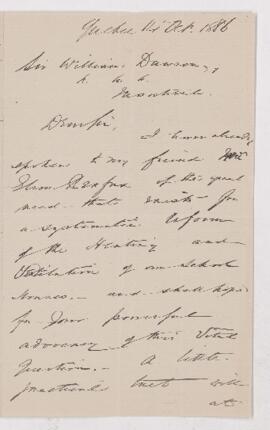 Quebec 11 Oct. 1886
Sir William Dawson,
Montreal.
Dear Sir,
I have already
spoken to my friend
of the great
need that exists for
a systematic reform
of the Heating and
Ventilation of our School
houses, and shall hope
for your powerful
advocacy of this Vital
Question. A little
practical will
at